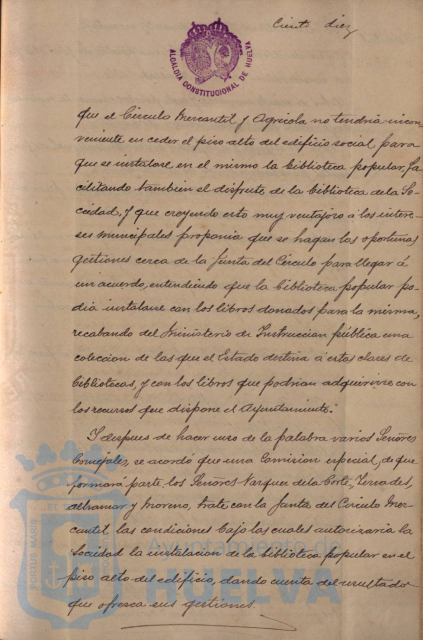 Ciento diez
ALCALDIA CONSTITUCIONAL DE HUELVA
que el Círculo Mercantil y Agrícola no tendría incon-
veniente en ceder el piso alto del edificio social para
que se instalase en el mismo la biblioteca popular, fa-
cilitando tambien el disfrute de la biblioteca de la So-
ciedad, y que creyendo esto muy ventajoso á los intere-
ses municipales proponia que se hagan las oportunas
gestiones cerca de la Junta del Círculo para llegar á
un acuerdo, entendiendo que la biblioteca popular po-
dia instalarse con los libros donados para la misma,
recabando del Ministerio de Instruccion pública una
coleccion de las que el Estado destina á estas clases de
bibliotecas, y con los libros que podrian adquirirse con
los recursos que dispone el Ayuntamiento.
Y despues de hacer uso de la palabra varios Señores
Concejales, se acordó que una Comision especial, de que
formará parte los Señores Vazquez de la Corte, Terrades,
Alhamar y Moreno, trate con la Junta del Círculo Mer-
cantil las condiciones bajo las cuales autorizaria la
Sociedad la instalacion de la biblioteca popular en el
piso alto del edificio, dando cuenta del resultado
que ofrezca sus gestiones.
PORTUS MARIS
Ayuntamiento de
HUELVA